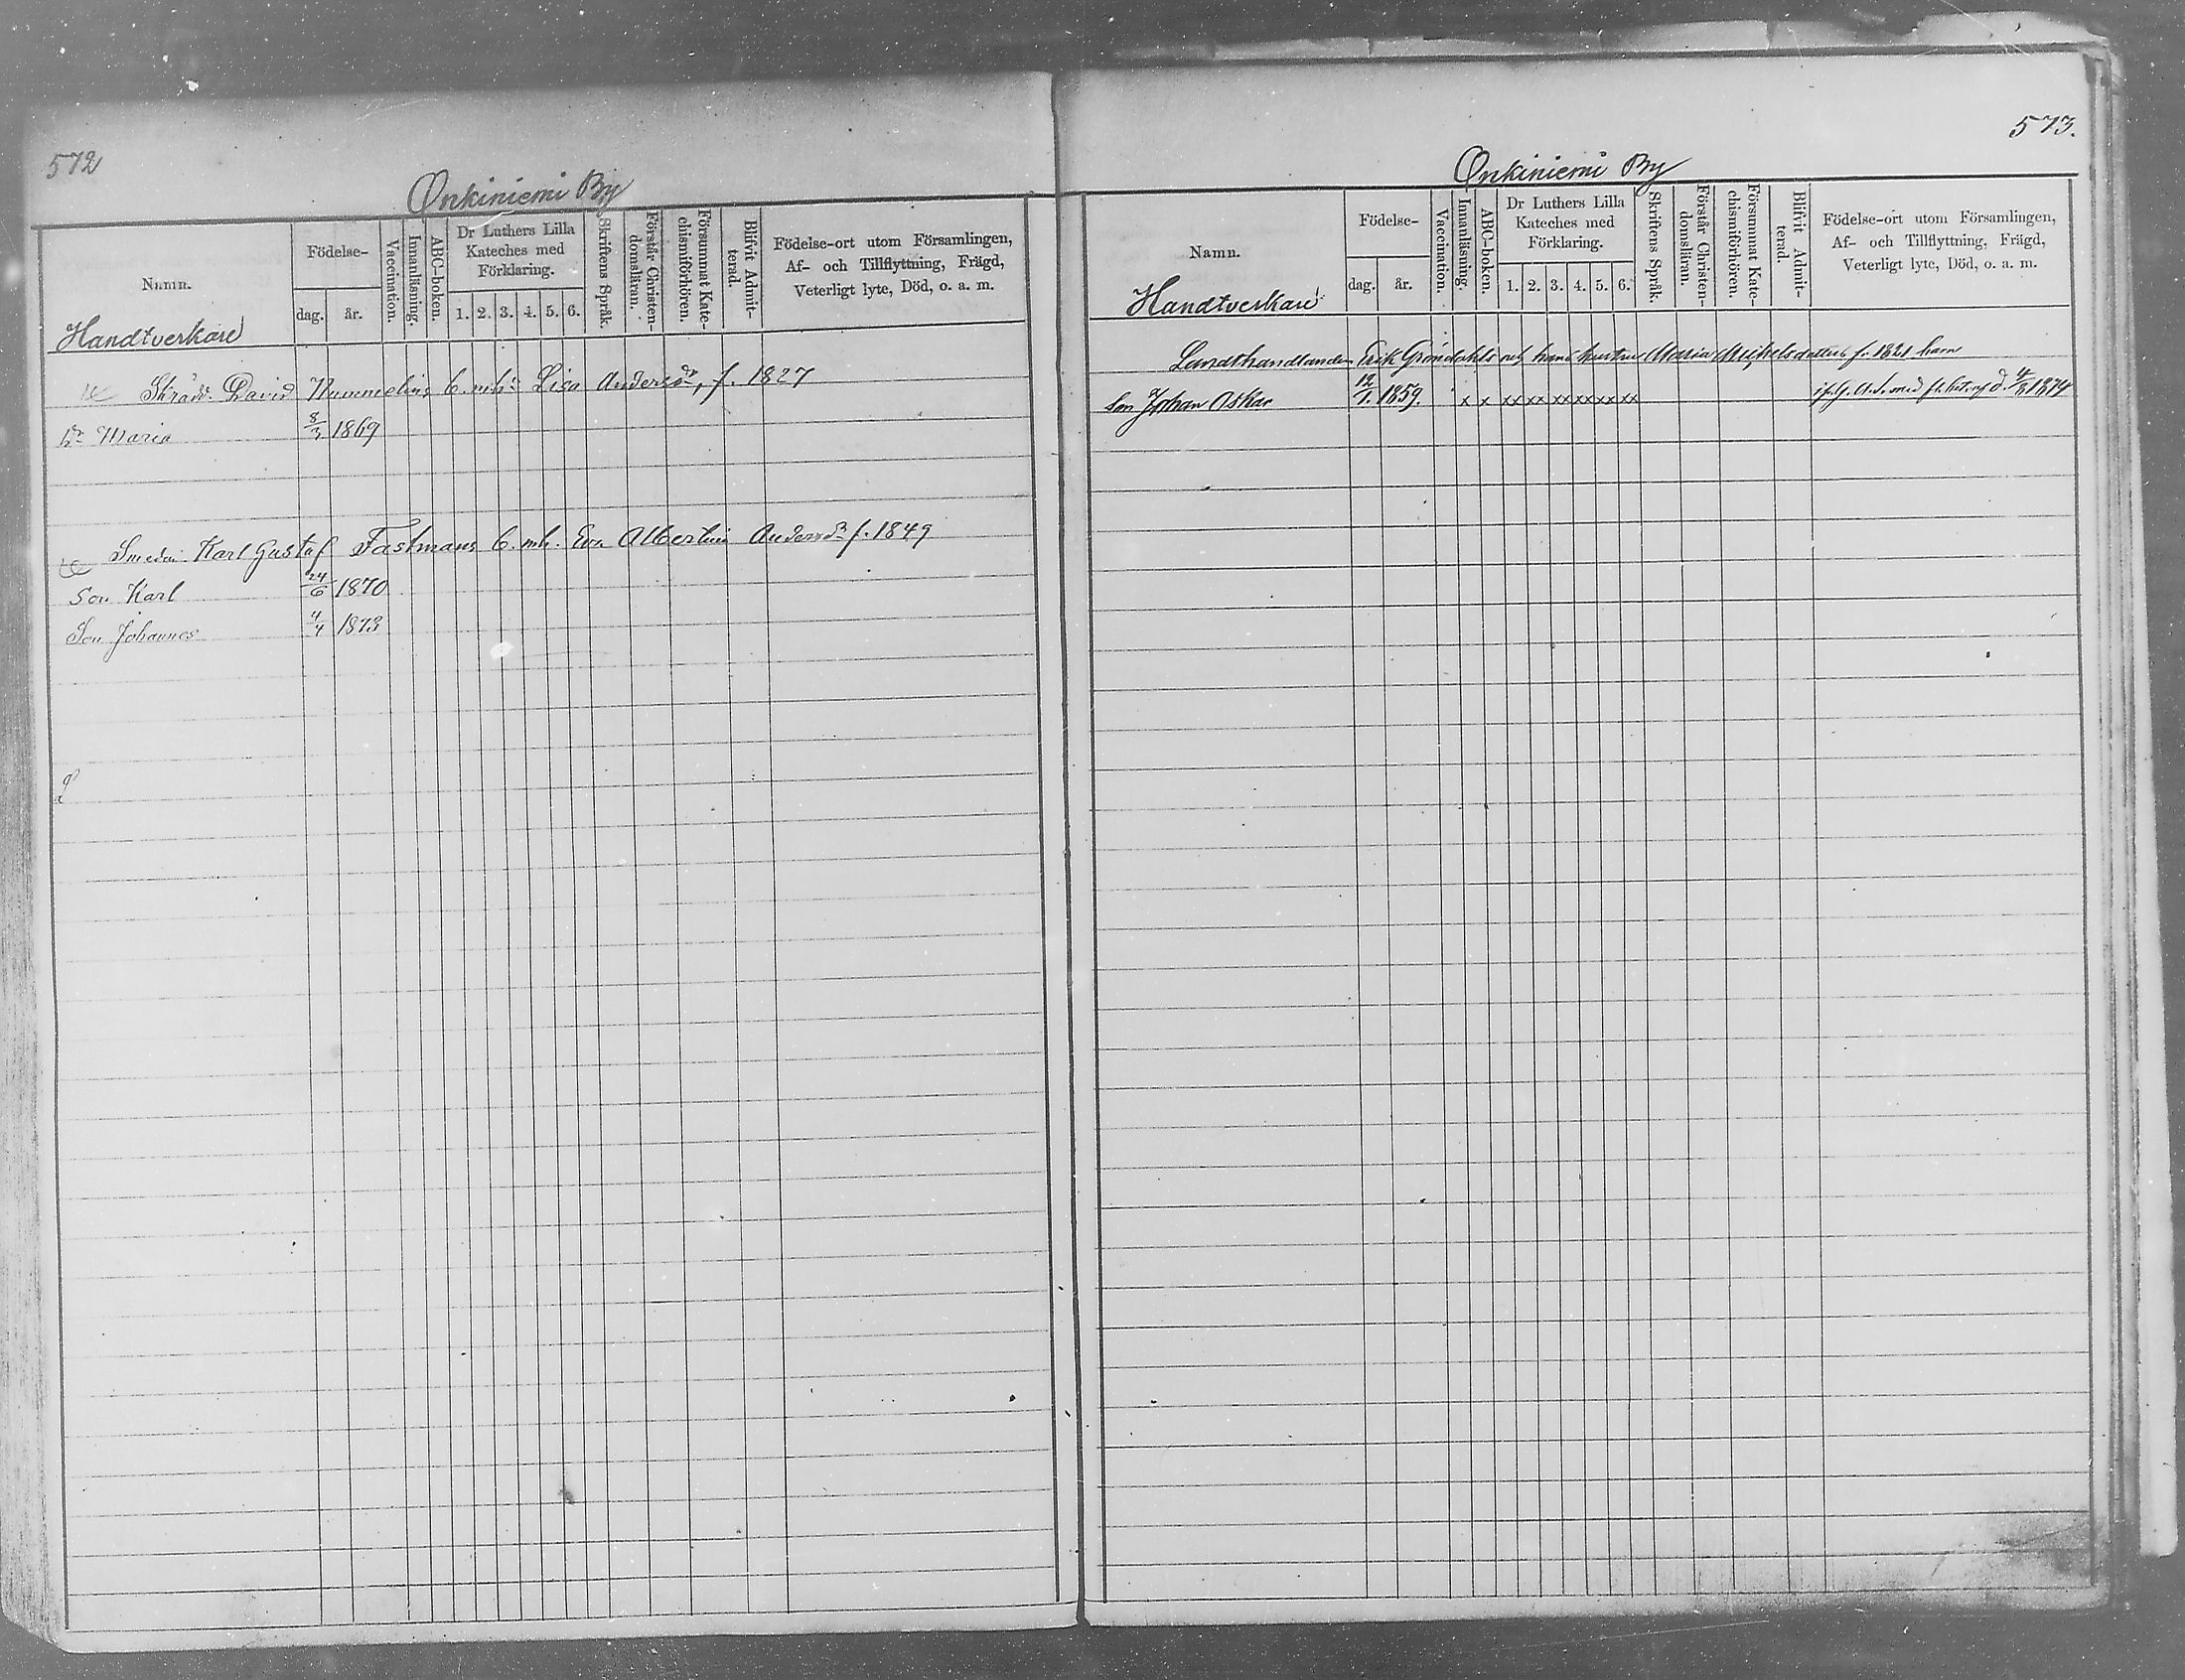 572
Onkiniemi By
Namn.
Handtverkare
Födelse-
dag.
år.
Vaccination.
Innanläsning.
ABC-boken.
Dr Luthers Lilla
Kateches med
Förklaring.
1. 2. 3. 4. 5. 6.
Skriftens Språk.
Förstår Christen-
domsläran.
Försummat Kate-
chismiförhören.
Blifvit Admit-
terad.
Födelse-ort utom Församlingen,
Af- och Tillflyttning, Frägd,
Veterligt lyte, Död, o. a. m.
Skrädd. David Nummelins b. mh: Lisa Andersdr, f. 1827
dr Maria 8/3 1869
Smeden Karl Gustaf Fastmans b. mh. Eva Albertina Andersdr f. 1849
Son Karl 24/6 1870
Son Johannes 4/4 1873
573.
Onkiniemi By
Namn.
Handtverkare
Födelse-
dag.
år.
Vaccination.
Innanläsning.
ABC-boken.
Dr Luthers Lilla
Kateches med
Förklaring.
1. 2. 3. 4. 5. 6.
Skriftens Språk.
Förstår Christen-
domsläran.
Försummat Kate-
chismiförhören.
Blifvit Admit-
terad.
Födelse-ort utom Församlingen,
Af- och Tillflyttning, Frägd,
Veterligt lyte, Död, o. a. m.
Landthandlanden Erik Gröndahls och hans hustru Maria Michelsdotters f. 1821 barn
Son Johan Oskar 12/1 1859. x x xx xx xx xx xx xx med fl. bet. af d. 4/8 1874